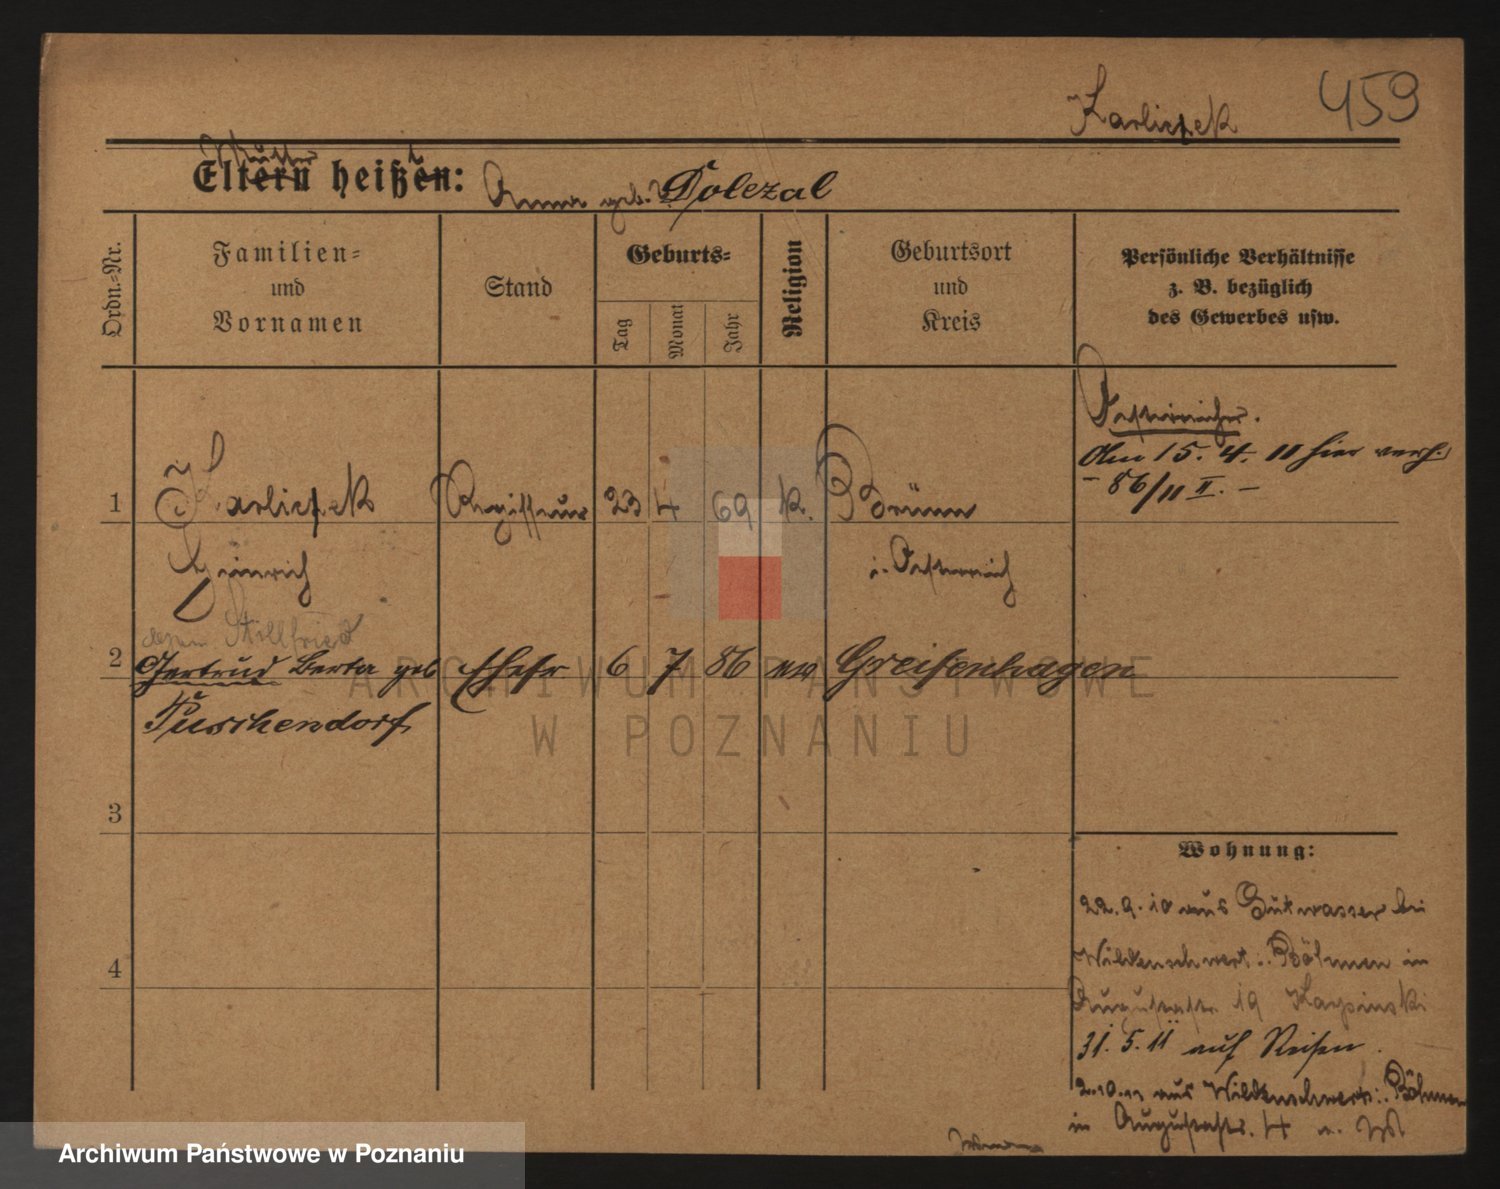 Karliczek 459
Mutter
Eltern heißen: Anna geb. Dolezal
Ordn.-Nr.
Familien-
und
Vornamen
Stand
Geburts-
Tag
Monat
Jahr
Religion
Geburtsort
und
Kreis
Persönliche Verhältnisse
z. B. bezüglich
des Gewerbes usw.
Oesterreicher.
Am 15. 4. 11 hier verh.
- 86/11 II. -
1 Karliczek Regisseur 23 4 69 k. Brünn
Heinrich i. Oesterreich
Stillfried
2 Gertrud Berta geb Ehefr 6 7 86 ev Greifenhagen
Puschendorf
3
4
Wohnung:
22.9.10 aus Gutwasser bei
Wildenschwert i. Böhmen in
Augustastr. 19 Karpinski
31. 5. 11 auf Reisen.
2.10.11 aus Wildenschwert i. Böhmen
in Augustastr. 4
ARCHIWUM PAŃSTWOWE
W POZNANIU
Archiwum Państwowe w Poznaniu